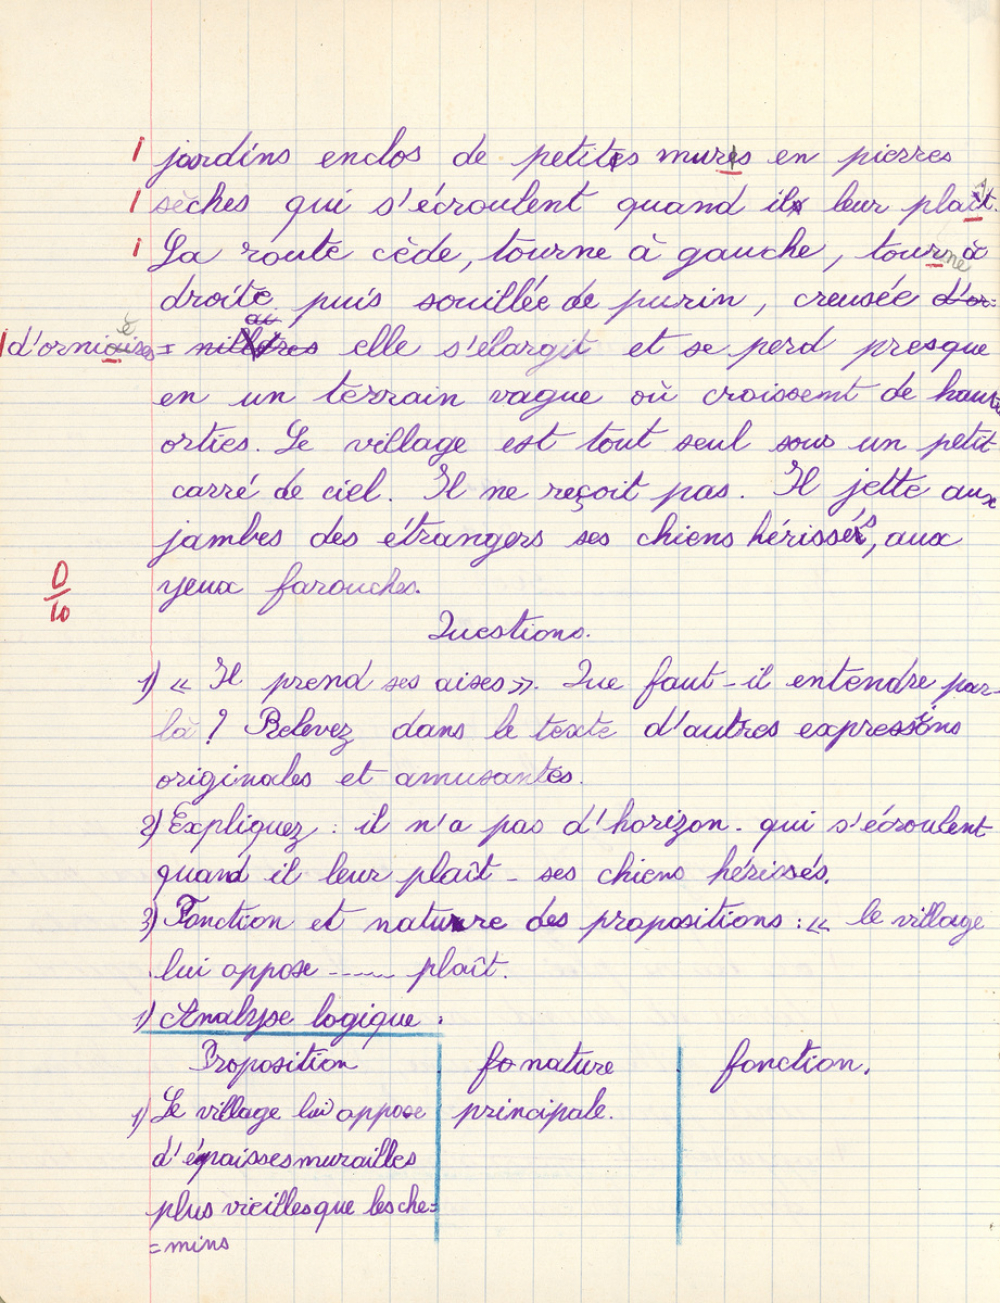 jardins enclos de petites mures en pierres
sèches qui s'écroulent quand il leur plaît.
La route cède, tourne à gauche, tourne à
droite, puis souillée de purin, creusée d'or=
d'ornières = elle s'elargit et se perd presque
en un terrain vague où croissemt de hautes
orties. Le village est tout seul sous un petit
carré de ciel. Il ne reçoit pas. Il jette aux
jambes des étrangers ses chiens hérissés, aux
yeux farouches.
0/10
Questions.
1) « Il prend ses aises ». Que faut-il entendre par-
là ? Relevez dans le texte d'autres expressions
originales et amusantes.
2) Expliquez : il n'a pas d'horizon. qui s'écroulent
quand il leur plaît - ses chiens hérissés.
3) Fonction et nature des propositions : « le village
lui oppose ------ plaît.
1) Analyse logique :
Proposition fo nature fonction.
1) Le village lui oppose principale.
d'épaisses murailles
plus vieilles que les che=
=mins